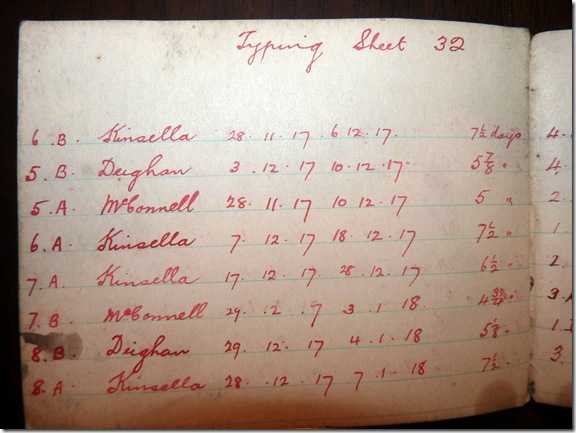 Typing Sheet 32
6. B. Kinsella 28. 11. 17 6 12. 17. 7½ days 4.
5. B. Deighan 3. 12. 17 10. 12. 17. 5⅞ " 4.
5. A. McConnell 28. 11. 17 10 12. 17 5 " 2.
6. A Kinsella 7. 12. 17 18. 12. 17 7½ " 1.
7. A. Kinsella 17. 12. 17 28 12. 17 6½ " 2.
7. B. McConnell 29. 2. 7 3. 1. 18 4 " 3.
8. B. Deighan 29. 12. 17 4. 1. 18 5⅛ " 1.
8. A Kinsella 28. 12. 17 7 1. 18 7½ " 3.